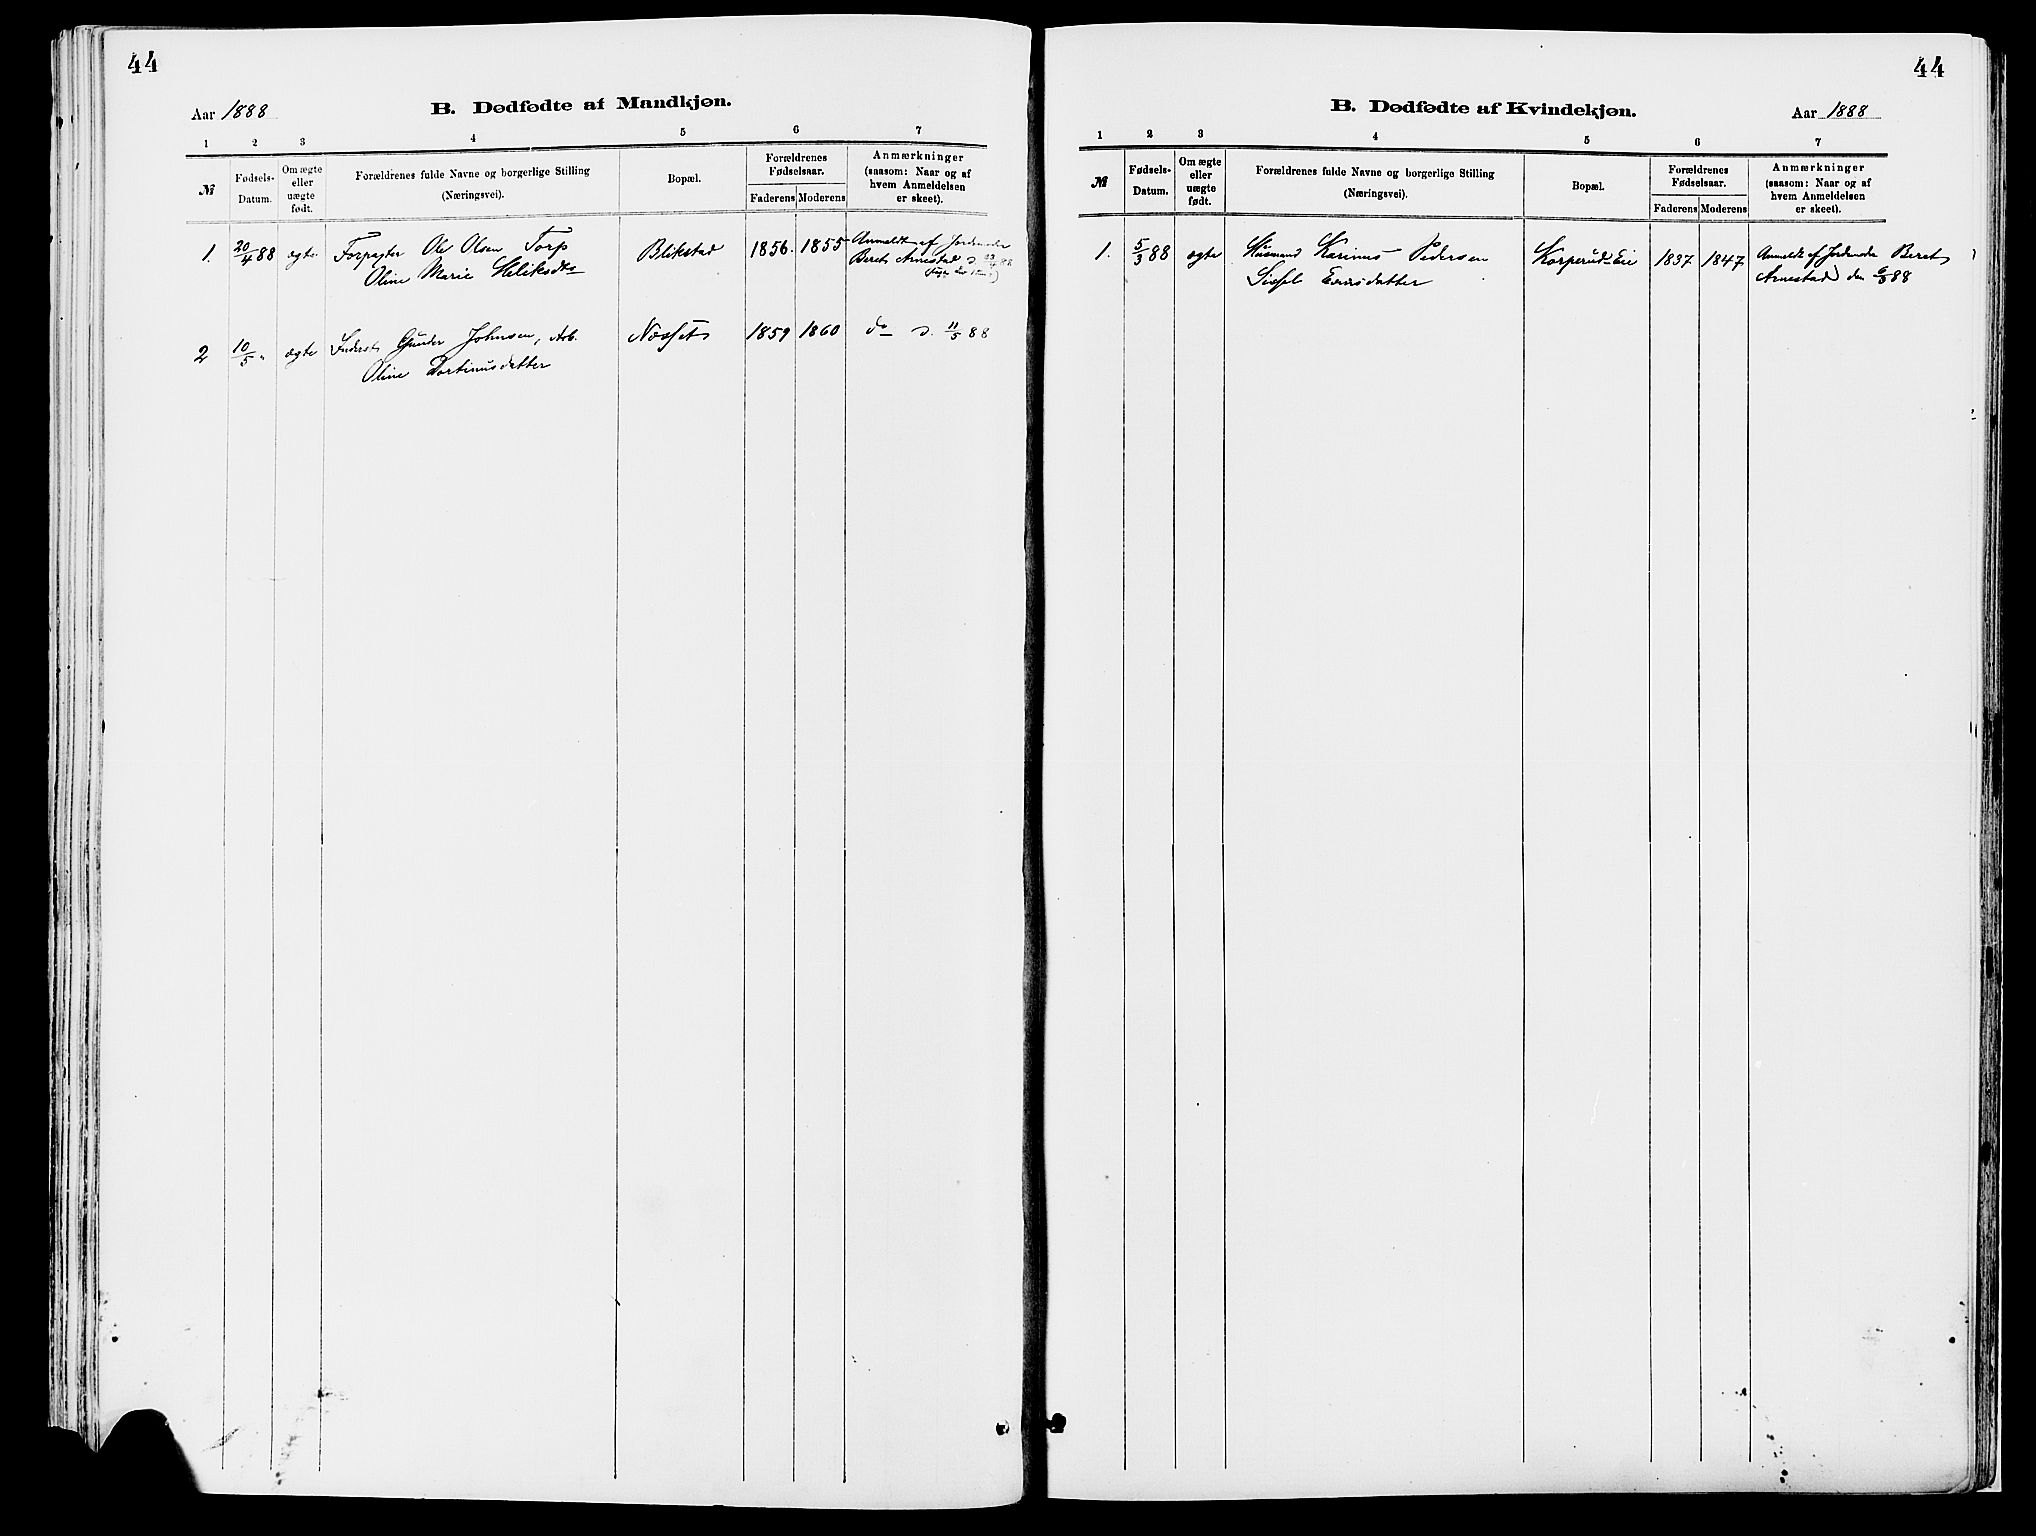 44
Aar 1888
B. Dødfødte af Mandkjøn.
1 2 3 4 5 6 7
№
Fødsels-
Datum.
Om ægte
eller
uægte
født.
Forældrenes fulde Navne og borgerlige Stilling
(Næringsvei).
Bopæl.
Forældrenes
Fødselsaar.
Faderens Moderens
Anmærkninger
(saasom: Naar og af
hvem Anmeldelsen
er skeet).
1. 20/4 88 ægte Forpagter Ole Olsen Torp Blikstad 1856. 1855 Anmeldt af Jordemoder
Oline Marie Beret Arnestad d. 23/4 88
2 10/5 " ægte Inderst Gunder Johnsen, Arb. Næsset 1859 1860 do d. 11/5 88
Oline Martinusdatter
44
B. Dødfødte af Kvindekjøn.
Aar 1888
1 2 3 4 5 6 7
№
Fødsels-
Datum.
Om ægte
eller
uægte
født.
Forældrenes fulde Navne og borgerlige Stilling
(Næringsvei).
Bopæl.
Forældrenes
Fødselsaar.
Faderens Moderens
Anmærkninger
(saasom: Naar og af
hvem Anmeldelsen
er skeet).
1. 5/3 88 ægte Husmand Karinus Pedersen Korperud Eie 1837 1847 Anmeldt af Jordemoder Beret
Arnestad den 6/3 88